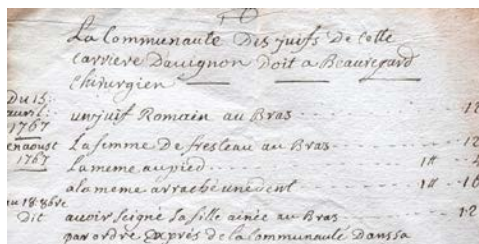 La Communauté Des juifs De cette
Carriere Davignon Doit a Beauregard
Chirurgien
Du 15:
avril:
1767 un juif Romain au Bras 12
en aoust La femme De fresteau au Bras 12
1767 La meme au pied 1# 4
a la meme arraché une dent 1# 16
Dit avoir seigné Sa fille ainée au Bras 12
par ordre Exprés de la Communauté Dans sa